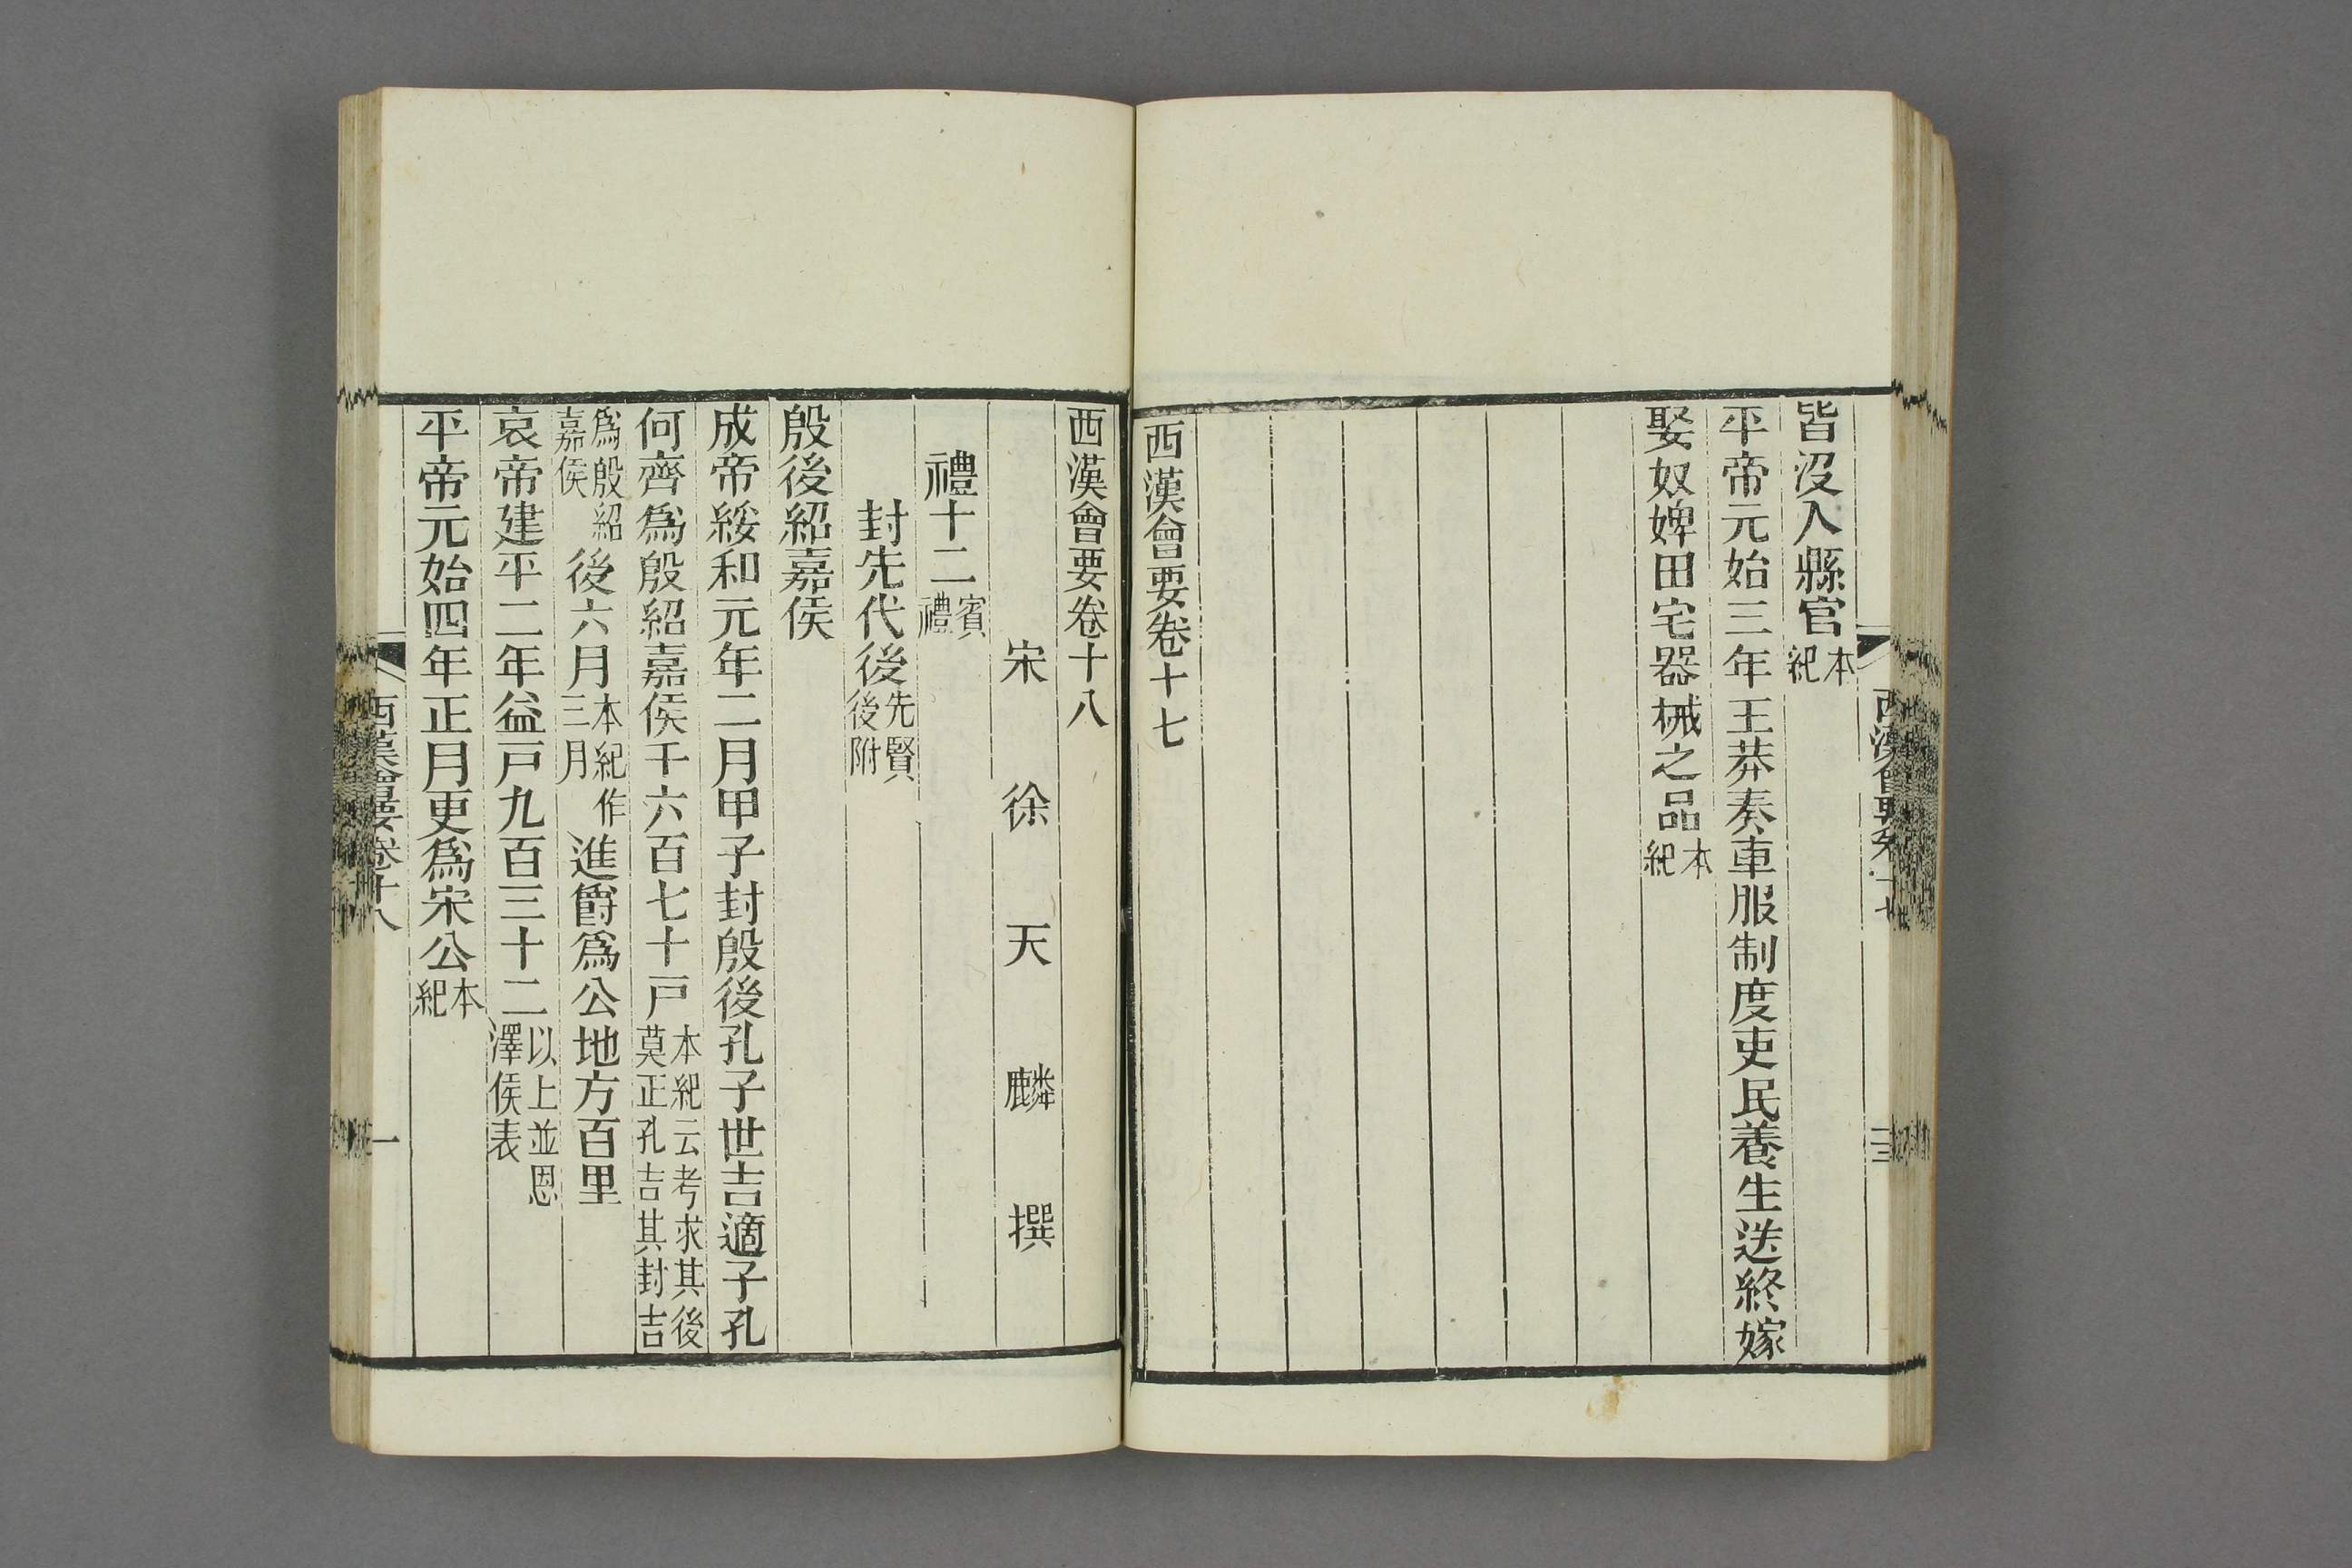 皆沒入縣官本紀
平帝元始三年王莽奏車服制度吏民養生送終嫁
娶奴婢田宅器械之品本紀
西漢會要卷十七
西漢會要卷十八
宋徐天麟撰
禮十二賓禮
封先代後先賢後附
殷後紹嘉侯
成帝綏和元年二月甲子封殷後孔子世吉適子孔
何齊爲殷紹嘉侯千六百七十戸本紀云考求其後莫正孔吉其封吉
爲殷紹嘉侯後六月本紀作三月進爵爲公地方百里
哀帝建平二年益戸九百三十二以上並恩澤侯表
平帝元始四年正月更爲宋公本紀
西漢會要卷十八
一